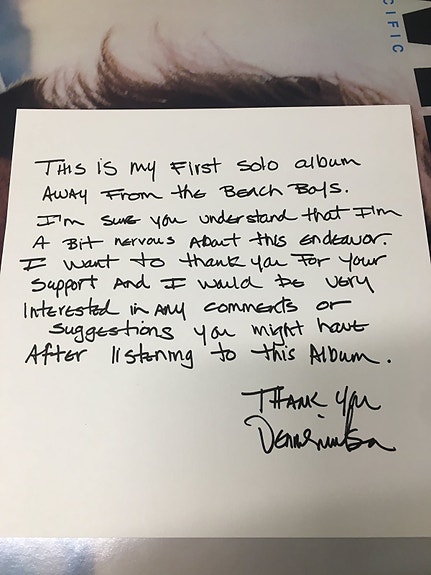 CIFIC
This is my first solo album
away from the Beach Boys.
I'm sure you understand that I'm
a bit nervous about this endeavor.
I want to thank you for your
support and I would be very
interested in any comments or
suggestions you might have
after listening to this album.
Thank you
Dennis Wilson